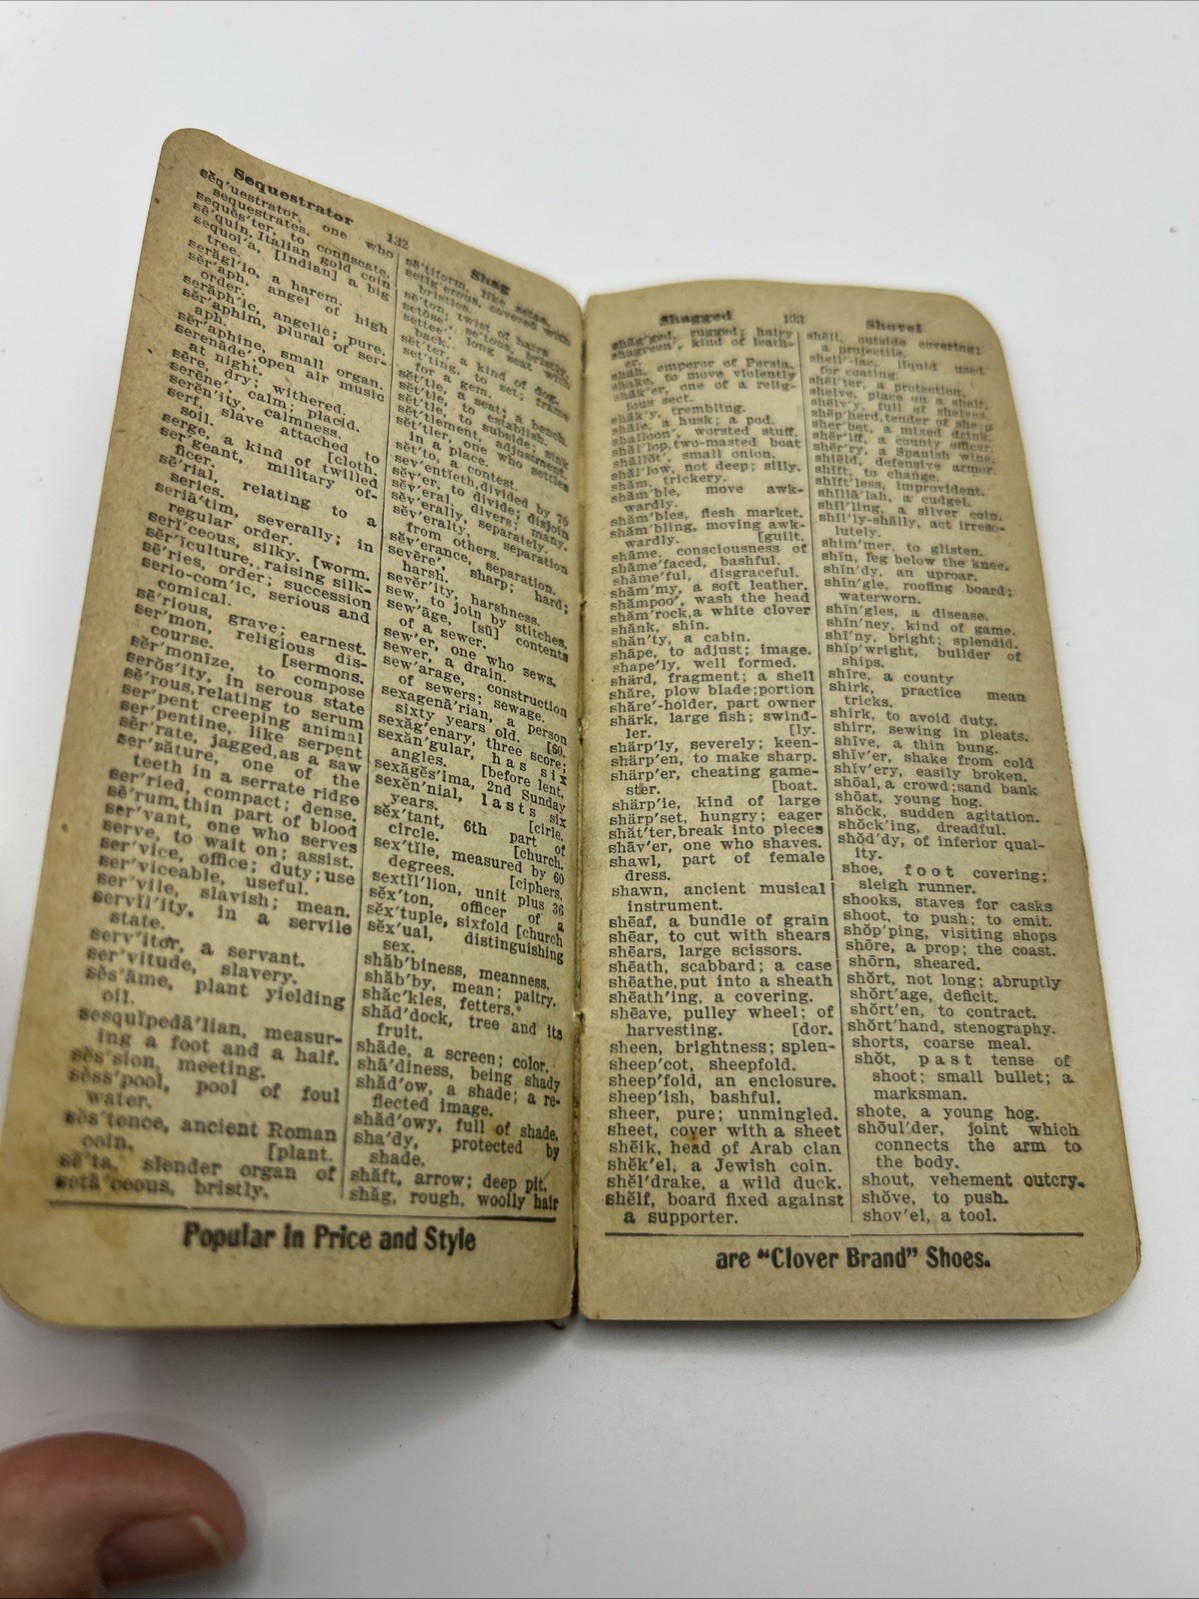 Sequestrator 132 Shag
sĕq'uestrator, one who
sequestrates.
sequĕs'ter, to confiscate.
sē'quin, Italian gold coin
sequoi'a, [Indian] a big
tree.
serägl'io, a harem.
sĕr'aph, angel of high
order.
serăph'ic, angelic; pure.
sĕr'aphim, plural of ser-
aph.
sĕr'aphine, small organ.
serenāde', open air music
at night.
sēre, dry; withered.
serēne', calm; placid.
serĕn'ity, calmness.
serf, slave attached to
soil. [cloth.
serge, a kind of twilled
ser'geant, military of-
ficer.
sē'rial, relating to a
series.
seriā'tim, severally; in
regular order.
serī'ceous, silky. [worm.
sĕr'iculture, raising silk-
sē'ries, order; succession
serio-com'ic, serious and
comical.
sē'rious, grave; earnest.
ser'mon, religious dis-
course. [sermons.
ser'monize, to compose
serŏs'ity, in serous state
sē'rous, relating to serum
ser'pent creeping animal
ser'pentine, like serpent
sĕr'rate, jagged, as a saw
ser'rature, one of the
teeth in a serrate ridge
ser'ried, compact; dense.
sē'rum, thin part of blood
ser'vant, one who serves
serve, to wait on; assist.
ser'vice, office; duty; use
ser'viceable, useful.
ser'vile, slavish; mean.
servĭl'ity, in a servile
state.
serv'itor, a servant.
ser'vitude, slavery.
sĕs'ame, plant yielding
oil.
sesquĭpedā'lian, measur-
ing a foot and a half.
sĕs'sion, meeting.
sĕss'pool, pool of foul
water.
sĕs'tence, ancient Roman
coin. [plant.
sē'ta, slender organ of
setā'ceous, bristly.
sē'tiform, like setae.
setig'erous, covered with
bristles.
sē'ton, twist of hairs
setōse', sē'tous, bristly.
settee', long seat with
back.
sĕt'ter, a kind of dog.
sĕt'ting, to set; frame
for a gem.
sĕt'tle, a seat; a bench.
sĕt'tle, to establish.
sĕt'tle, to subside; sink
sĕt'tlement, adjustment.
sĕt'tler, one who settles
in a place.
sĕt'to, a contest.
sev'entieth, divided by 70
sĕv'er, to divide; disjoin
sĕv'eral, divers; many.
sĕv'erally, separately.
sĕv'eralty, separation
from others.
sĕv'erance, separation.
sevēre', sharp; hard;
harsh.
sevĕr'ity, harshness.
sew, to join by stitches.
sew'āge, [sū] contents
of a sewer.
sew'er, one who sews.
sewer, a drain.
sew'arage, construction
of sewers; sewage.
sexagenā'rian, a person
sixty years old. [60.
sexăg'enary, three score;
sexăn'gular, has six
angles. [before lent.
sexăgĕs'ima, 2nd Sunday
sexĕn'nial, lasts six
years. [cirle.
sĕx'tant, 6th part of
circle. [church.
sex'tĭle, measured by 60
degrees. [ciphers.
sextĭl'lion, unit plus 36
sĕx'ton, officer of a
sĕx'tuple, sixfold [church
sĕx'ual, distinguishing
sex.
shăb'biness, meanness.
shăb'by, mean; paltry.
shăc'kles, fetters.
shăd'dock, tree and its
fruit.
shāde, a screen; color.
shā'diness, being shady
shăd'ow, a shade; a re-
flected image.
shăd'owy, full of shade.
sha'dy, protected by
shade.
shăft, arrow; deep pit.
shăg, rough, woolly hair
Popular in Price and Style
Shagged 133 Shovel
shăg'ged, rugged; hairy
shagreen', kind of leath-
er.
shäh, emperor of Persia.
shake, to move violently
shāk'er, one of a relig-
ious sect.
shāk'y, trembling.
shāle, a husk; a pod.
shalloon', worsted stuff.
shăl'lop, two-masted boat
shallŏt', small onion.
shăl'low, not deep; silly.
shăm, trickery.
shăm'ble, move awk-
wardly.
shăm'bles, flesh market.
shăm'bling, moving awk-
wardly. [guilt.
shāme, consciousness of
shāme'faced, bashful.
shāme'ful, disgraceful.
shăm'my, a soft leather.
shămpoo', wash the head
shăm'rock, a white clover
shănk, shin.
shăn'ty, a cabin.
shāpe, to adjust; image.
shape'ly, well formed.
shärd, fragment; a shell
shāre, plow blade; portion
shāre'-holder, part owner
shärk, large fish; swind-
ler. [ly.
shärp'ly, severely; keen-
shärp'en, to make sharp.
shärp'er, cheating game-
ster. [boat.
shärp'ie, kind of large
shärp'set, hungry; eager
shăt'ter, break into pieces
shāv'er, one who shaves.
shawl, part of female
dress.
shawn, ancient musical
instrument.
shēaf, a bundle of grain
shēar, to cut with shears
shēars, large scissors.
shēath, scabbard; a case
shēathe, put into a sheath
shēath'ing, a covering.
shēave, pulley wheel; of
harvesting. [dor.
sheen, brightness; splen-
sheep'cot, sheepfold.
sheep'fold, an enclosure.
sheep'ish, bashful.
sheer, pure; unmingled.
sheet, cover with a sheet
shēik, head of Arab clan
shĕk'el, a Jewish coin.
shĕl'drake, a wild duck.
shĕlf, board fixed against
a supporter.
shĕll, outside covering;
a projectile.
shell'-lac, liquid used
for coating.
shĕl'ter, a protection.
shelve, place on a shelf.
shĕlv'y, full of shelves.
shĕp'herd, tender of sheep
sher'bet, a mixed drink.
shĕr'iff, a county officer.
shĕr'ry, a Spanish wine.
shiēld, defensive armor.
shĭft, to change.
shĭft'less, improvident.
shĭllā'lah, a cudgel.
shĭl'ling, a silver coin.
shĭl'ly-shălly, act irreso-
lutely.
shim'mer, to glisten.
shĭn, leg below the knee.
shĭn'dy, an uproar.
shĭn'gle, roofing board;
waterworn.
shĭn'gles, a disease.
shĭn'ney, kind of game.
shī'ny, bright; splendid.
shĭp'wright, builder of
ships.
shīre, a county
shirk, practice mean
tricks.
shirk, to avoid duty.
shirr, sewing in pleats.
shīve, a thin bung.
shĭv'er, shake from cold
shĭv'ery, easily broken.
shōal, a crowd; sand bank
shōat, young hog.
shŏck, sudden agitation.
shŏck'ing, dreadful.
shŏd'dy, of inferior qual-
ity.
shoe, foot covering;
sleigh runner.
shooks, staves for casks
shoot, to push; to emit.
shŏp'ping, visiting shops
shōre, a prop; the coast.
shōrn, sheared.
shŏrt, not long; abruptly
shŏrt'age, deficit.
shŏrt'en, to contract.
shŏrt'hand, stenography.
shorts, coarse meal.
shŏt, past tense of
shoot; small bullet; a
marksman.
shote, a young hog.
shōul'der, joint which
connects the arm to
the body.
shout, vehement outcry.
shŏve, to push.
shov'el, a tool.
are "Clover Brand" Shoes.